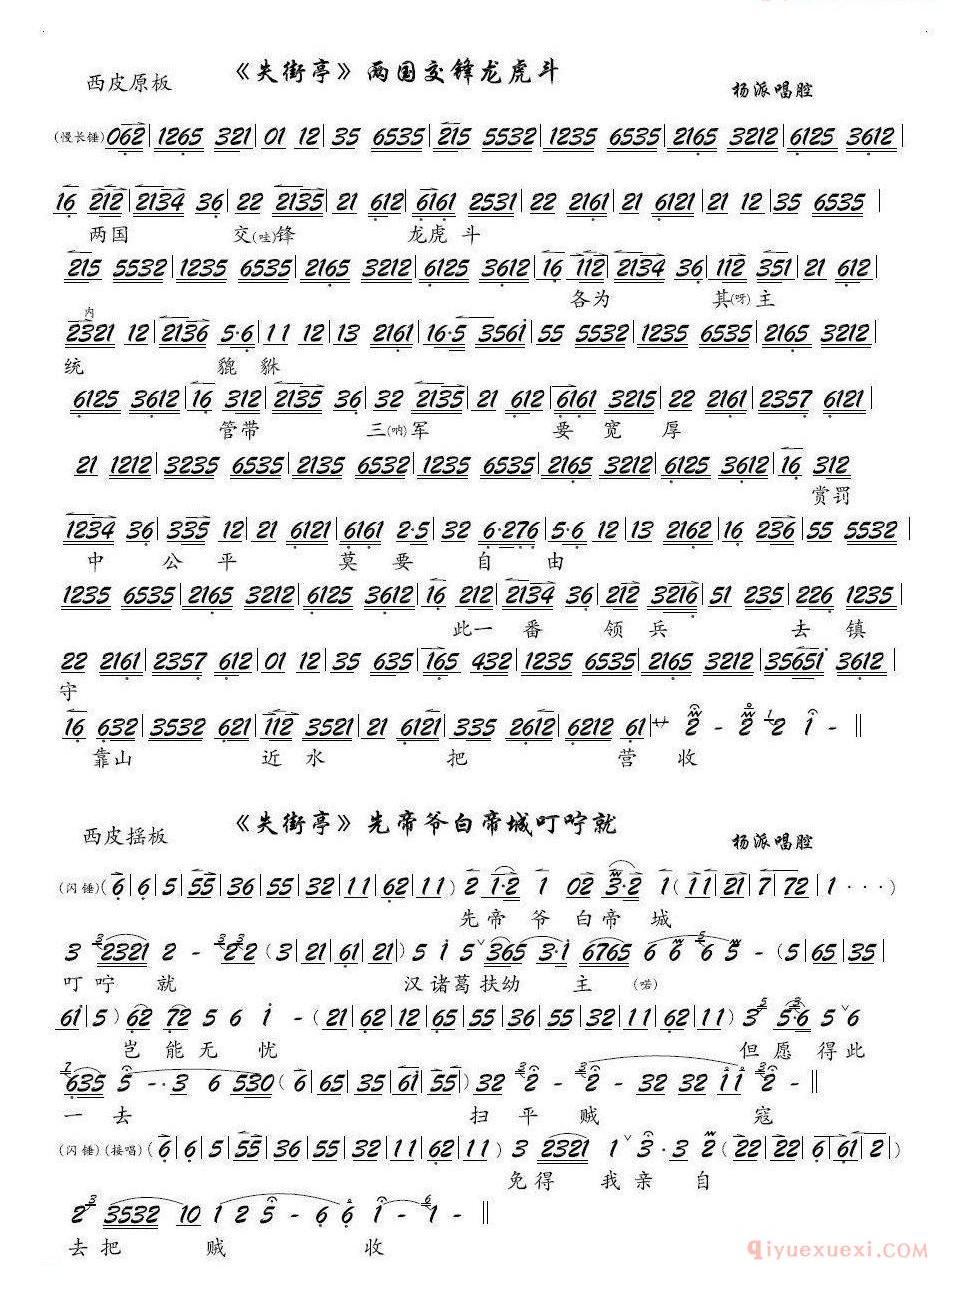 《失街亭》两国交锋龙虎斗
西皮原板
杨派唱腔
(慢长锤) 062 | 1265 321 | 01 12 | 35 6535 | 215 5532 | 1235 6535 | 2165 3212 | 6125 3612 |
16 212 | 2134 36 | 22 2135 | 21 612 | 6161 2531 | 22 2161 | 21 6121 | 21 12 | 35 6535 |
两国 交(哇)锋 龙虎 斗
215 5532 | 1235 6535 | 2165 3212 | 6125 3612 | 16 112 | 2134 36 | 112 351 | 21 612 |
各为 其(呀)主
内
2321 12 | 2136 5·6 | 11 12 | 13 2161 | 16·5 3561 | 55 5532 | 1235 6535 | 2165 3212 |
统 貔 貅
6125 3612 | 16 312 | 2135 36 | 32 2135 | 21 612 | 6161 3215 | 22 2161 | 2357 6121 |
管带 三(呐)军 要 宽 厚
21 1212 | 3235 6535 | 2135 6532 | 1235 6535 | 2165 3212 | 6125 3612 | 16 312
赏罚
1234 36 | 335 12 | 21 6121 | 6161 2·5 | 32 6·276 | 5·6 12 | 13 2162 | 16 236 | 55 5532 |
中 公 平 莫 要 自 由
1235 6535 | 2165 3212 | 6125 3612 | 16 212 | 2134 36 | 212 3216 | 51 235 | 226 1235 |
此一 番 领 兵 去 镇
22 2161 | 2357 612 | 01 12 | 35 635 | 165 432 | 1235 6535 | 2165 3212 | 35651 3612 |
守
16 6332 | 3532 621 | 112 3521 | 21 6121 | 335 2612 | 6212 61 | サ 2 - 2 2 1 - ‖
靠山 近 水 把 营 收
《失街亭》先帝爷白帝城叮咛就
西皮摇板
杨派唱腔
(闪锤)(6 | 6 | 5 | 55 | 36 | 55 | 32 | 11 | 62 | 11 | ) 2 1·2 1 02 3·2 1 ( 11 | 21 | 7 | 72 | 1 · · · )
先帝 爷 白帝 城
3 2321 2 - 22 ( 3 | 21 | 61 | 21 ) 5 1 5 365 3·1 6765 6 6 6 5 - ( 5 | 65 | 35 |
叮咛 就 汉 诸葛 扶幼 主 (喏)
61 | 5 | ) 62 72 5 6 1 - ( 21 | 62 | 12 | 65 | 55 | 36 | 55 | 32 | 11 | 62 | 11 | ) 3 5·6 5 6
岂 能 无 忧 但 愿 得此
635 5 - · 3 6 530 ( 6 | 65 | 35 | 61 | 55 | ) 32 2 - 2 - 32 32 11 2 - ‖
一 去 扫 平 贼 寇
(闪锤)(接唱)( 6 | 6 | 5 | 55 | 36 | 55 | 32 | 11 | 62 | 11 ) 3 2321 1 3 · 3 2 ( 22 | 22 | 6 | 61 | 2 | )
免得 我 亲 自
2 3532 10 1 2 5 - 6 6 1 - 1 - ‖
去 把 贼 收
qiyuexuexi.COM